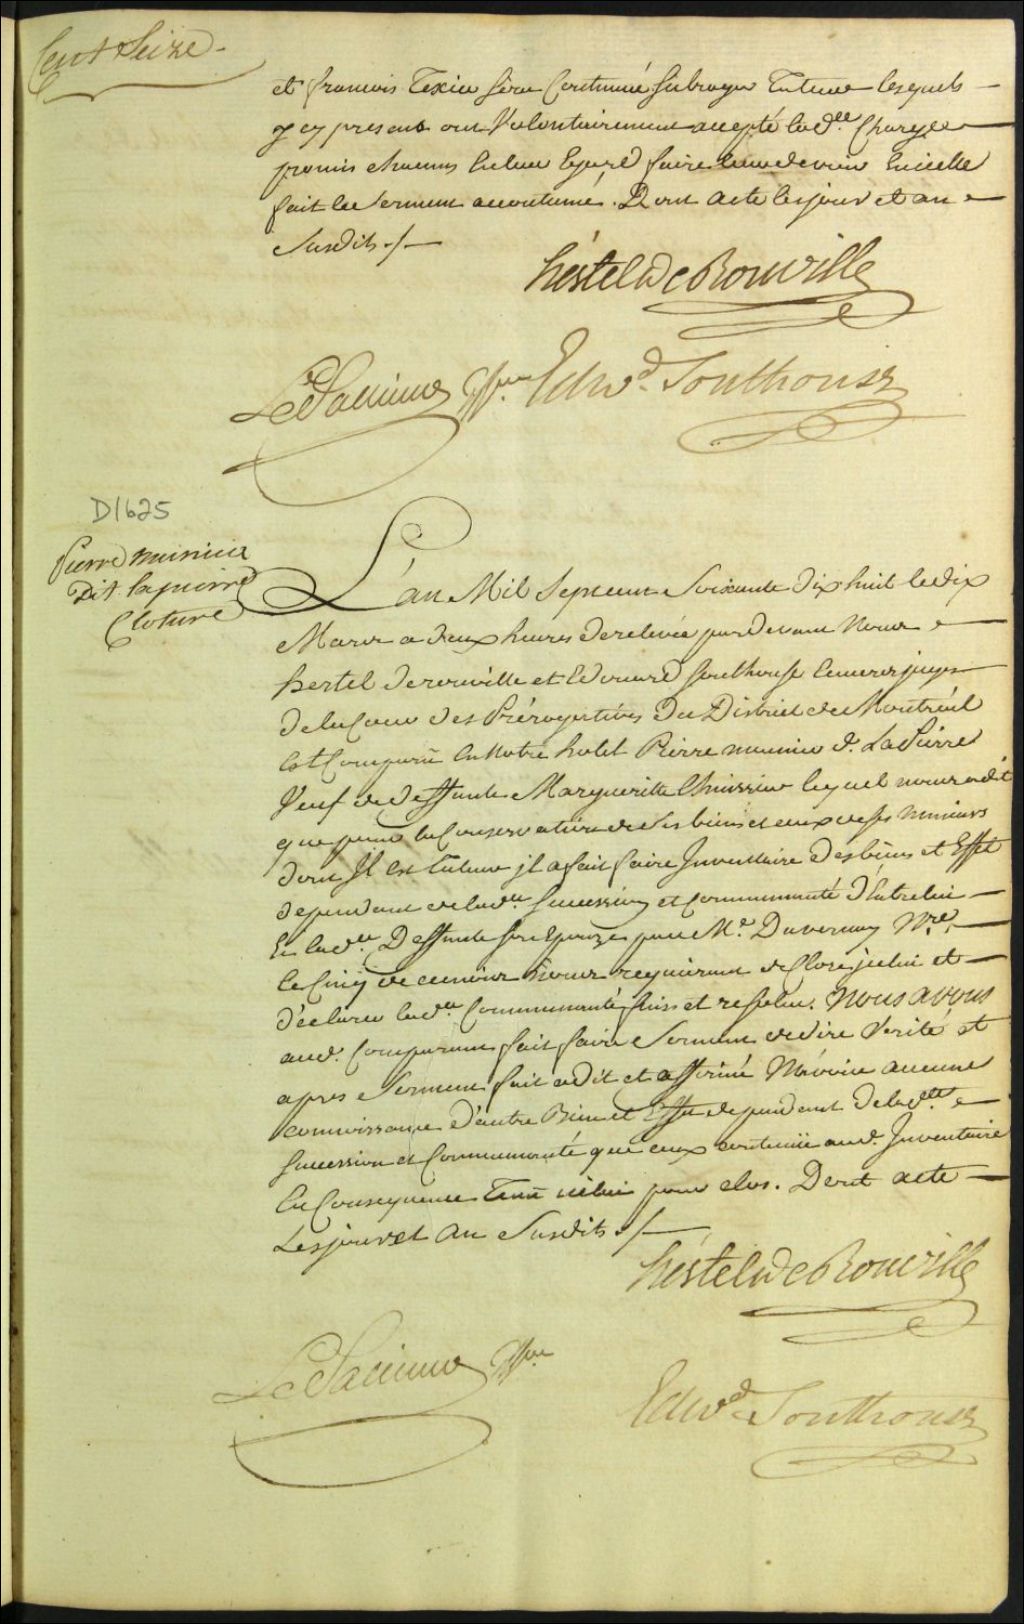 Cent Seize
et francois Texier sera Continué subrogé Tuteur lesquels
à ce presens ont Volontairement accepté lad.te Charge
promis chacuns à leur Egard faire leur devoir en icelle
fait le Serment accoutumé. Dont acte les jour et an
Susdits ./.
hertel De Rouville
Edw.d Southouse
D1625
Pierre munier
Dit lapierre
Cloture
L'an Mil Sept cent Soixante Dix huit le dix
Mars a deux heures de relevée pardevant Nous
hertel De rouville et Edouard Southouse Ecuiers juges
de la Cour des Prérogatives du District de Montréal
Est Comparu En Notre hotel Pierre meunier d. LaPierre
Veuf de deffunte Margueritte lequel nous a dit
que pour la Conservation de ses biens et ceux de ses Mineurs
dont Il est Tuteur jl a fait faire Inventaire Des biens et Effet
dependant de lad.te Succession et Communauté d'Entre lui
Et lad.te Deffunte son Epouze par M.e Duvernay N.re
le Cinq de ce mois Nous requierant de Clore jcelui et
déclarer lad.te Communauté finis et resolue. Nous avons
aud. Comparant fait faire Serment de dire Verité et
apres Serment fait a dit et affirmé N'avoir aucune
connoissance d'autre Bien et Effet dependant de lad.te
Succession et Communauté que ceux contenu aud. Inventaire
En Consequence Tenu icelui pour clos. Dont acte
Les jour et an Susdits ./.
hertel De Rouville
Edw.d Southouse